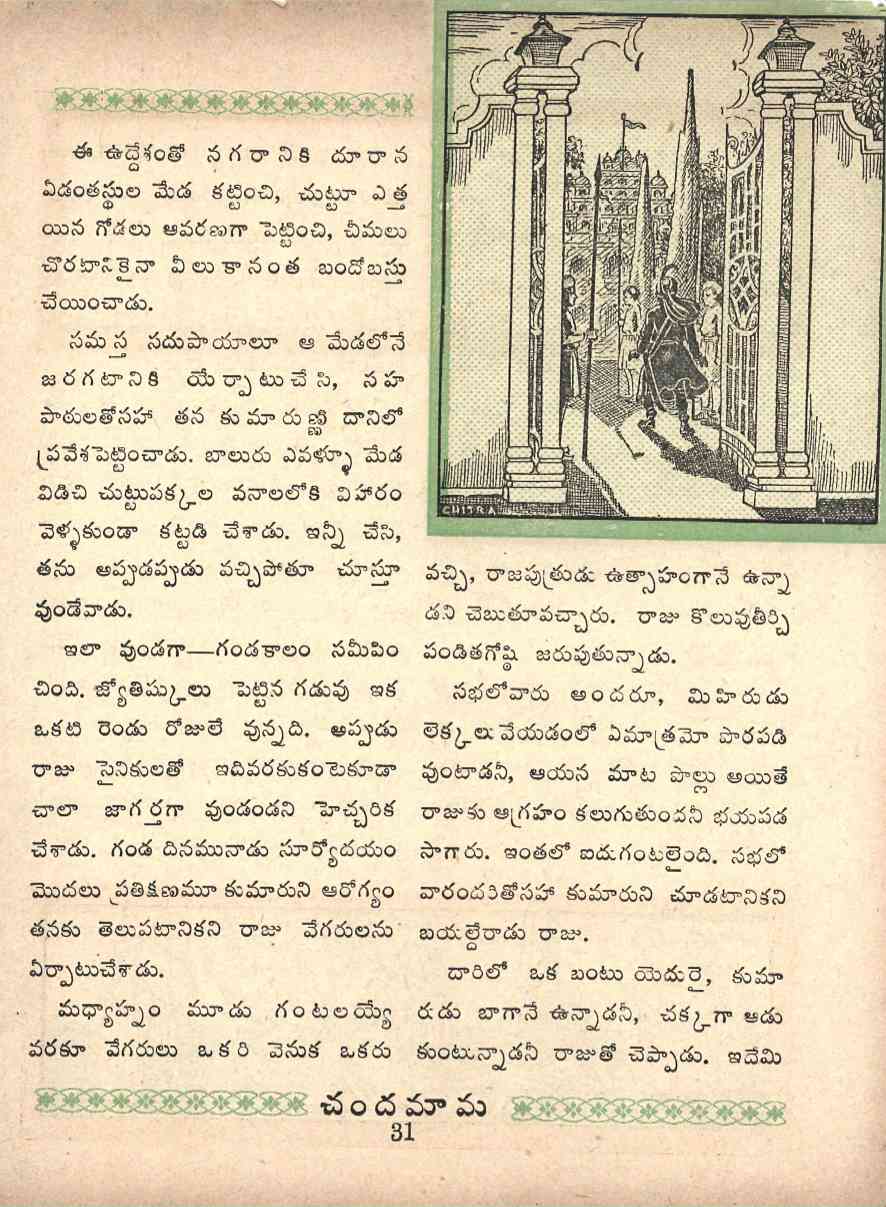 ఈ ఉద్దేశంతో నగరానికి దూరాన
ఏడంతస్థుల మేడ కట్టించి, చుట్టూ ఎత్త
యిన గోడలు ఆవరణగా పెట్టించి, చీమలు
చొరటానికైనా వీలుకానంత బందోబస్తు
చేయించాడు.
సమస్త సదుపాయాలూ ఆ మేడలోనే
జరగటానికి యేర్పాటుచేసి, సహ
పాఠులతోసహా తన కుమారుణ్ణి దానిలో
ప్రవేశపెట్టించాడు. బాలురు ఎవళ్ళూ మేడ
విడిచి చుట్టుపక్కల వనాలలోకి విహారం
వెళ్ళకుండా కట్టడి చేశాడు. ఇన్నీ చేసి,
తను అప్పుడప్పుడు వచ్చిపోతూ చూస్తూ
వుండేవాడు.
ఇలా వుండగా—గండకాలం సమీపిం
చింది. జ్యోతిష్కులు పెట్టిన గడువు ఇక
ఒకటి రెండు రోజులే వున్నది. అప్పుడు
రాజు సైనికులతో ఇదివరకుకంటెకూడా
చాలా జాగర్తగా వుండండని హెచ్చరిక
చేశాడు. గండ దినమునాడు సూర్యోదయం
మొదలు ప్రతిక్షణమూ కుమారుని ఆరోగ్యం
తనకు తెలుపటానికని రాజు వేగరులను
ఏర్పాటుచేశాడు.
మధ్యాహ్నం మూడు గంటలయ్యే
వరకూ వేగరులు ఒకరి వెనుక ఒకరు
CHITRA
వచ్చి, రాజపుత్రుడు ఉత్సాహంగానే ఉన్నా
డని చెబుతూవచ్చారు. రాజు కొలువుతీర్చి
పండితగోష్ఠి జరుపుతున్నాడు.
సభలోవారు అందరూ, మిహిరుడు
లెక్కలు వేయడంలో ఏమాత్రమో పొరపడి
వుంటాడనీ, ఆయన మాట పొల్లు అయితే
రాజుకు ఆగ్రహం కలుగుతుందనీ భయపడ
సాగారు. ఇంతలో ఐదుగంటలైంది. సభలో
వారందరితోసహా కుమారుని చూడటానికని
బయల్దేరాడు రాజు.
దారిలో ఒక బంటు యెదురై, కుమా
రుడు బాగానే ఉన్నాడనీ, చక్కగా ఆడు
కుంటున్నాడనీ రాజుతో చెప్పాడు. ఇదేమి
చందమామ
31